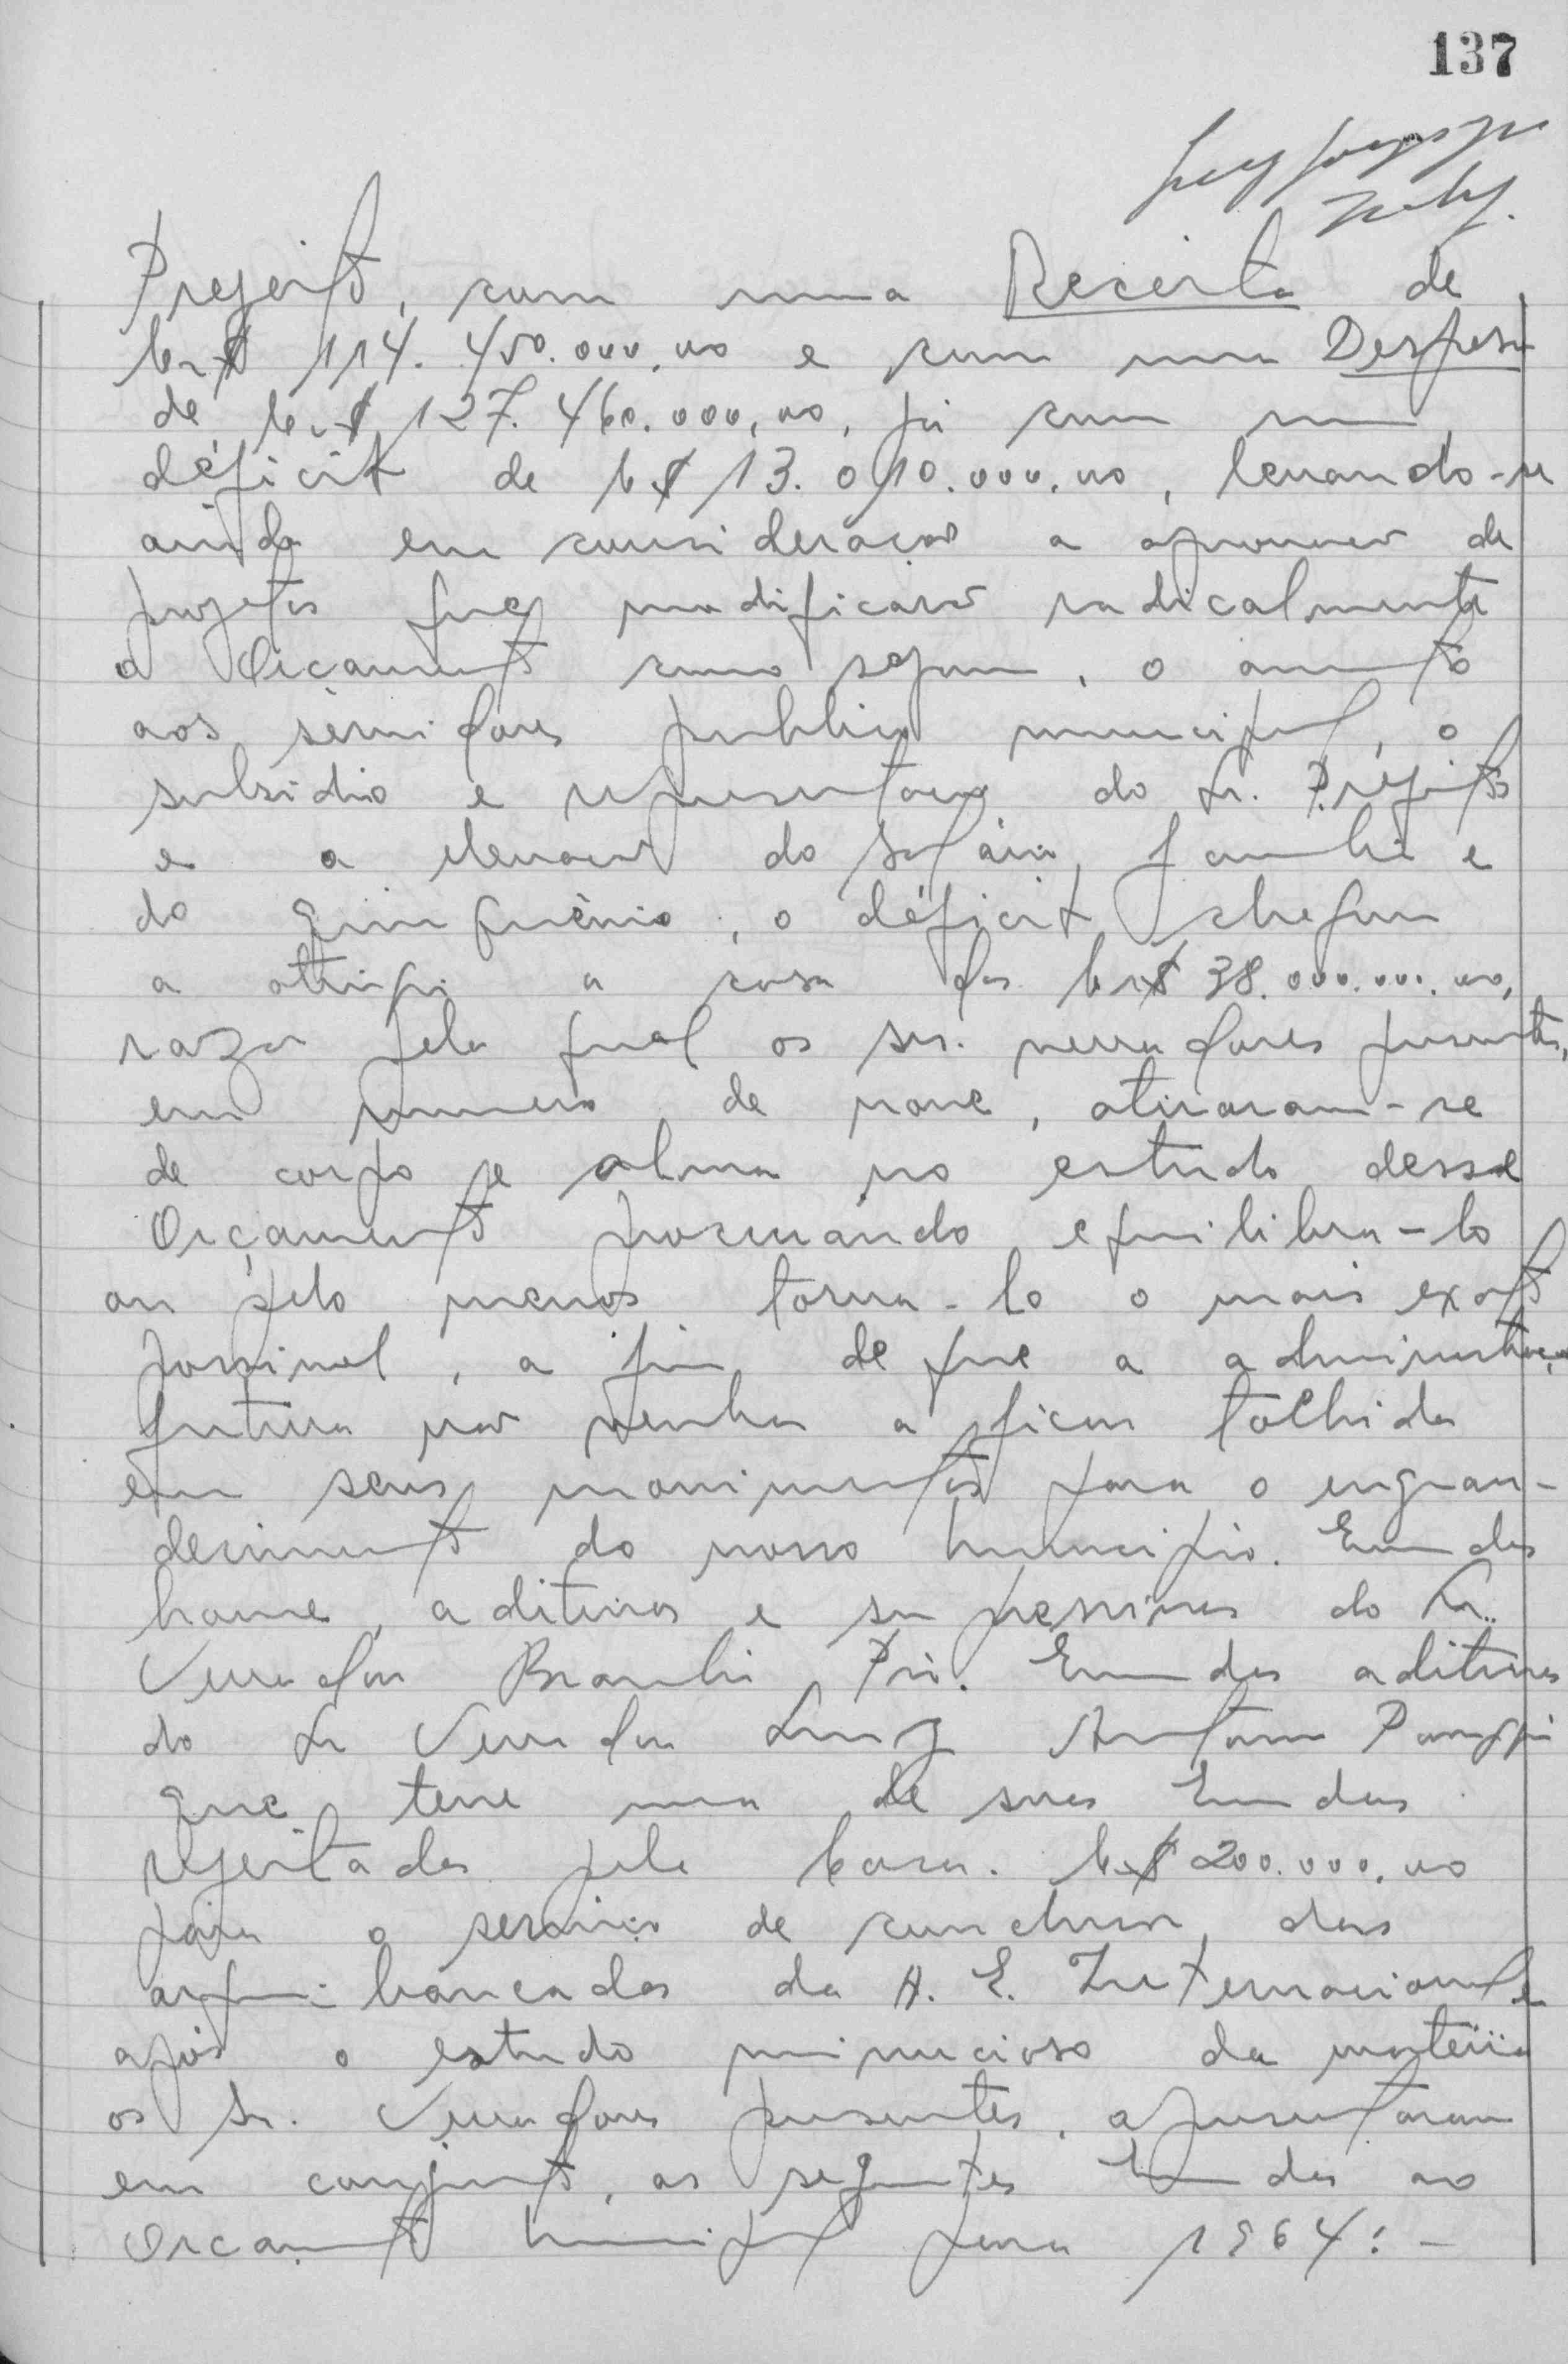 137
Prefeito, com uma Receita de
Cr$ 114.450.000,00 e com uma Despesa
de Cr$ 127.460.000,00, já com um
déficit de Cr$ 13.010.000,00, levando-se
ainda em consideração a aprovação de
projetos que modificarão radicalmente
o Orçamento como sejam, o aumento
aos servidores publico municipal, o
subsidio e representação do Sr. Prefeito
e a elevação do salário familia e
do quinquênio, o déficit chegou
a atingir a casa dos Cr$ 38.000.000,00,
razão pela qual os srs. vereadores presentes,
em numero de nove, atiraram-se
de corpo e alma no estudo desse
Orçamento procurando equilibra-lo
ou pelo menos torna-lo o mais exato
possivel, a fim de que a administração
futura não venha a ficar tolhida
em seus movimentos para o engran-
decimento do nosso Municipio. Emendas
houve, aditivas e supressivas do Sr.
Vereador Braulio Pio. Emendas aditivas
do Sr Vereador Luiz Antonio
que teve uma de suas Emendas
rejeitadas pela Casa. Cr$ 200.000,00
para o serviço de conclusão das
arquibancadas da A. E. Internacional e
após o estudo minucioso da materia
os Sr. Vereadores presentes, apresentaram
em conjunto, as seguintes Emendas ao
Orcamento Municipal para 1964:-